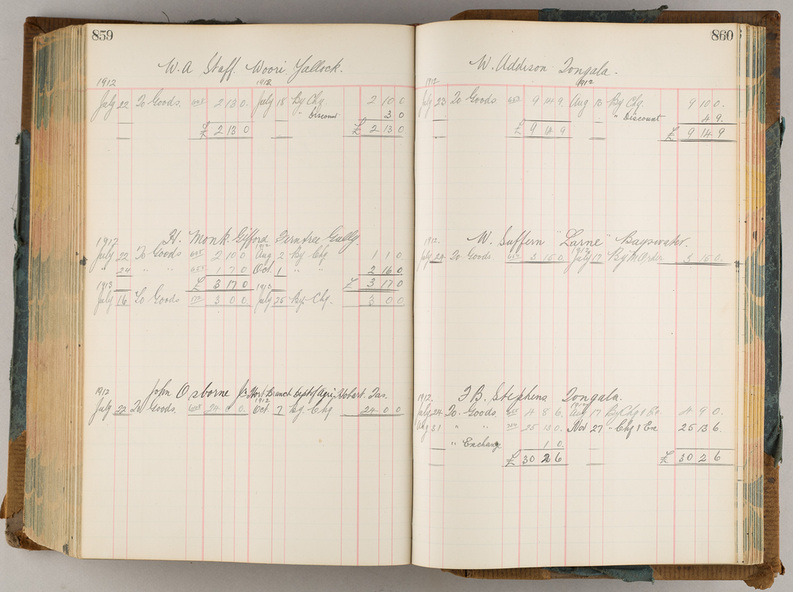 859
W. A Staff. Woori Yallock.
1912 1912
July 22 To Goods 2 13 0 July 18 By Chq 2 10 0
" Discount 3 0
£ 2 13 0 £ 2 13 0
H. Monk Gifford Ferntree Gully
1912 1912
July 22 To Goods 2 10 0 Aug 2 By Chq 1 1 0
24 " " 1 7 0 Oct 1 " " 2 16 0
1913 £ 3 17 0 1913 £ 3 17 0
July 16 To Goods 3 0 0 July 25 By Chq 3 0 0
John Osborne Hort Branch Dept of Agri, Hobart. Tas.
1912 1912
July 22 To Goods 24 0 0 Oct 7 By Chq 24 0 0
860
W. Addison Tongala.
1912 1912
July 23 To Goods 9 14 9 Aug By Chq 9 10 0
" Discount 4 9
£ 9 14 9 £ 9 14 9
W. Suffern "Larne" Bayswater.
1912 1912
July 24 To Goods 3 15 0 July 17 By 3 15 0
F B. Stephens Tongala.
1912 1912
July 24 To Goods 4 8 6 Aug 17 By Chq & Ex 4 9 0
Aug 31 " " 25 13 0 Nov 27 " Chq & Ex 25 13 6
" Exchang 1 0
£ 30 2 6 £ 30 2 6